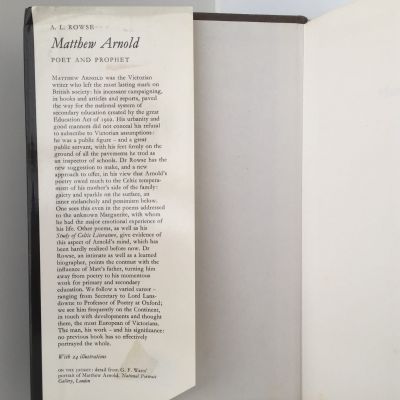 A. L. ROWSE
Matthew Arnold
POET AND PROPHET
MATTHEW ARNOLD was the Victorian
writer who left the most lasting mark on
British society: his incessant campaigning,
in books and articles and reports, paved
the way for the national system of
secondary education created by the great
Education Act of 1902. His urbanity and
good manners did not conceal his refusal
to subscribe to Victorian assumptions:
he was a public figure – and a great
public servant, with his feet firmly on the
ground of all the pavements he trod as
an inspector of schools. Dr Rowse has the
new suggestion to make, and a new
approach to offer, in his view that Arnold's
poetry owed much to the Celtic tempera-
ment of his mother's side of the family:
gaiety and sparkle on the surface, an
inner melancholy and pessimism below.
One sees this even in the poems addressed
to the unknown Marguerite, with whom
he had the major emotional experience of
his life. Other poems, as well as his
Study of Celtic Literature, give evidence of
this aspect of Arnold's mind, which has
been hardly realized before now. Dr
Rowse, an intimate as well as a learned
biographer, points the contrast with the
influence of Matt's father, turning him
away from poetry to his momentous
work for primary and secondary
education. We follow a varied career –
ranging from Secretary to Lord Lans-
downe to Professor of Poetry at Oxford;
we see him frequently on the Continent,
in touch with developments and thought
there, the most European of Victorians.
The man, his work – and his significance:
no previous book has so effectively
portrayed the whole.
With 24 illustrations
ON THE JACKET: detail from G. F. Watts'
portrait of Matthew Arnold, National Portrait
Gallery, London